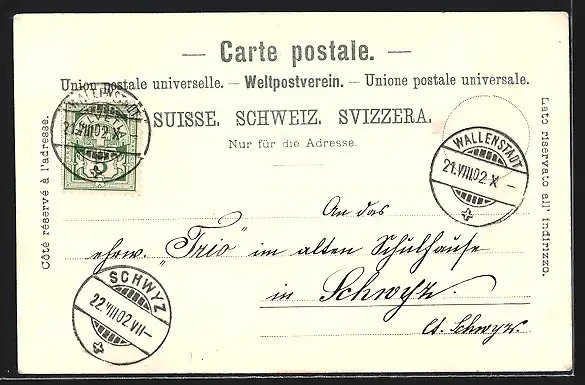 — Carte postale. —
Union postale universelle. — Weltpostverein. — Unione postale universale.
SUISSE. SCHWEIZ. SVIZZERA.
Nur für die Adresse.
Côté réservé à l'adresse.
Lato riservato all' indirizzo.
WALLENSTADT
21.VIII.02.X-
5
WALLENSTADT
21.VIII.02.X-
An das
ehrw. "Trio" im alten Schulhause
in Schwyz.
Ct. Schwyz.
SCHWYZ
22.VIII.02.VII-